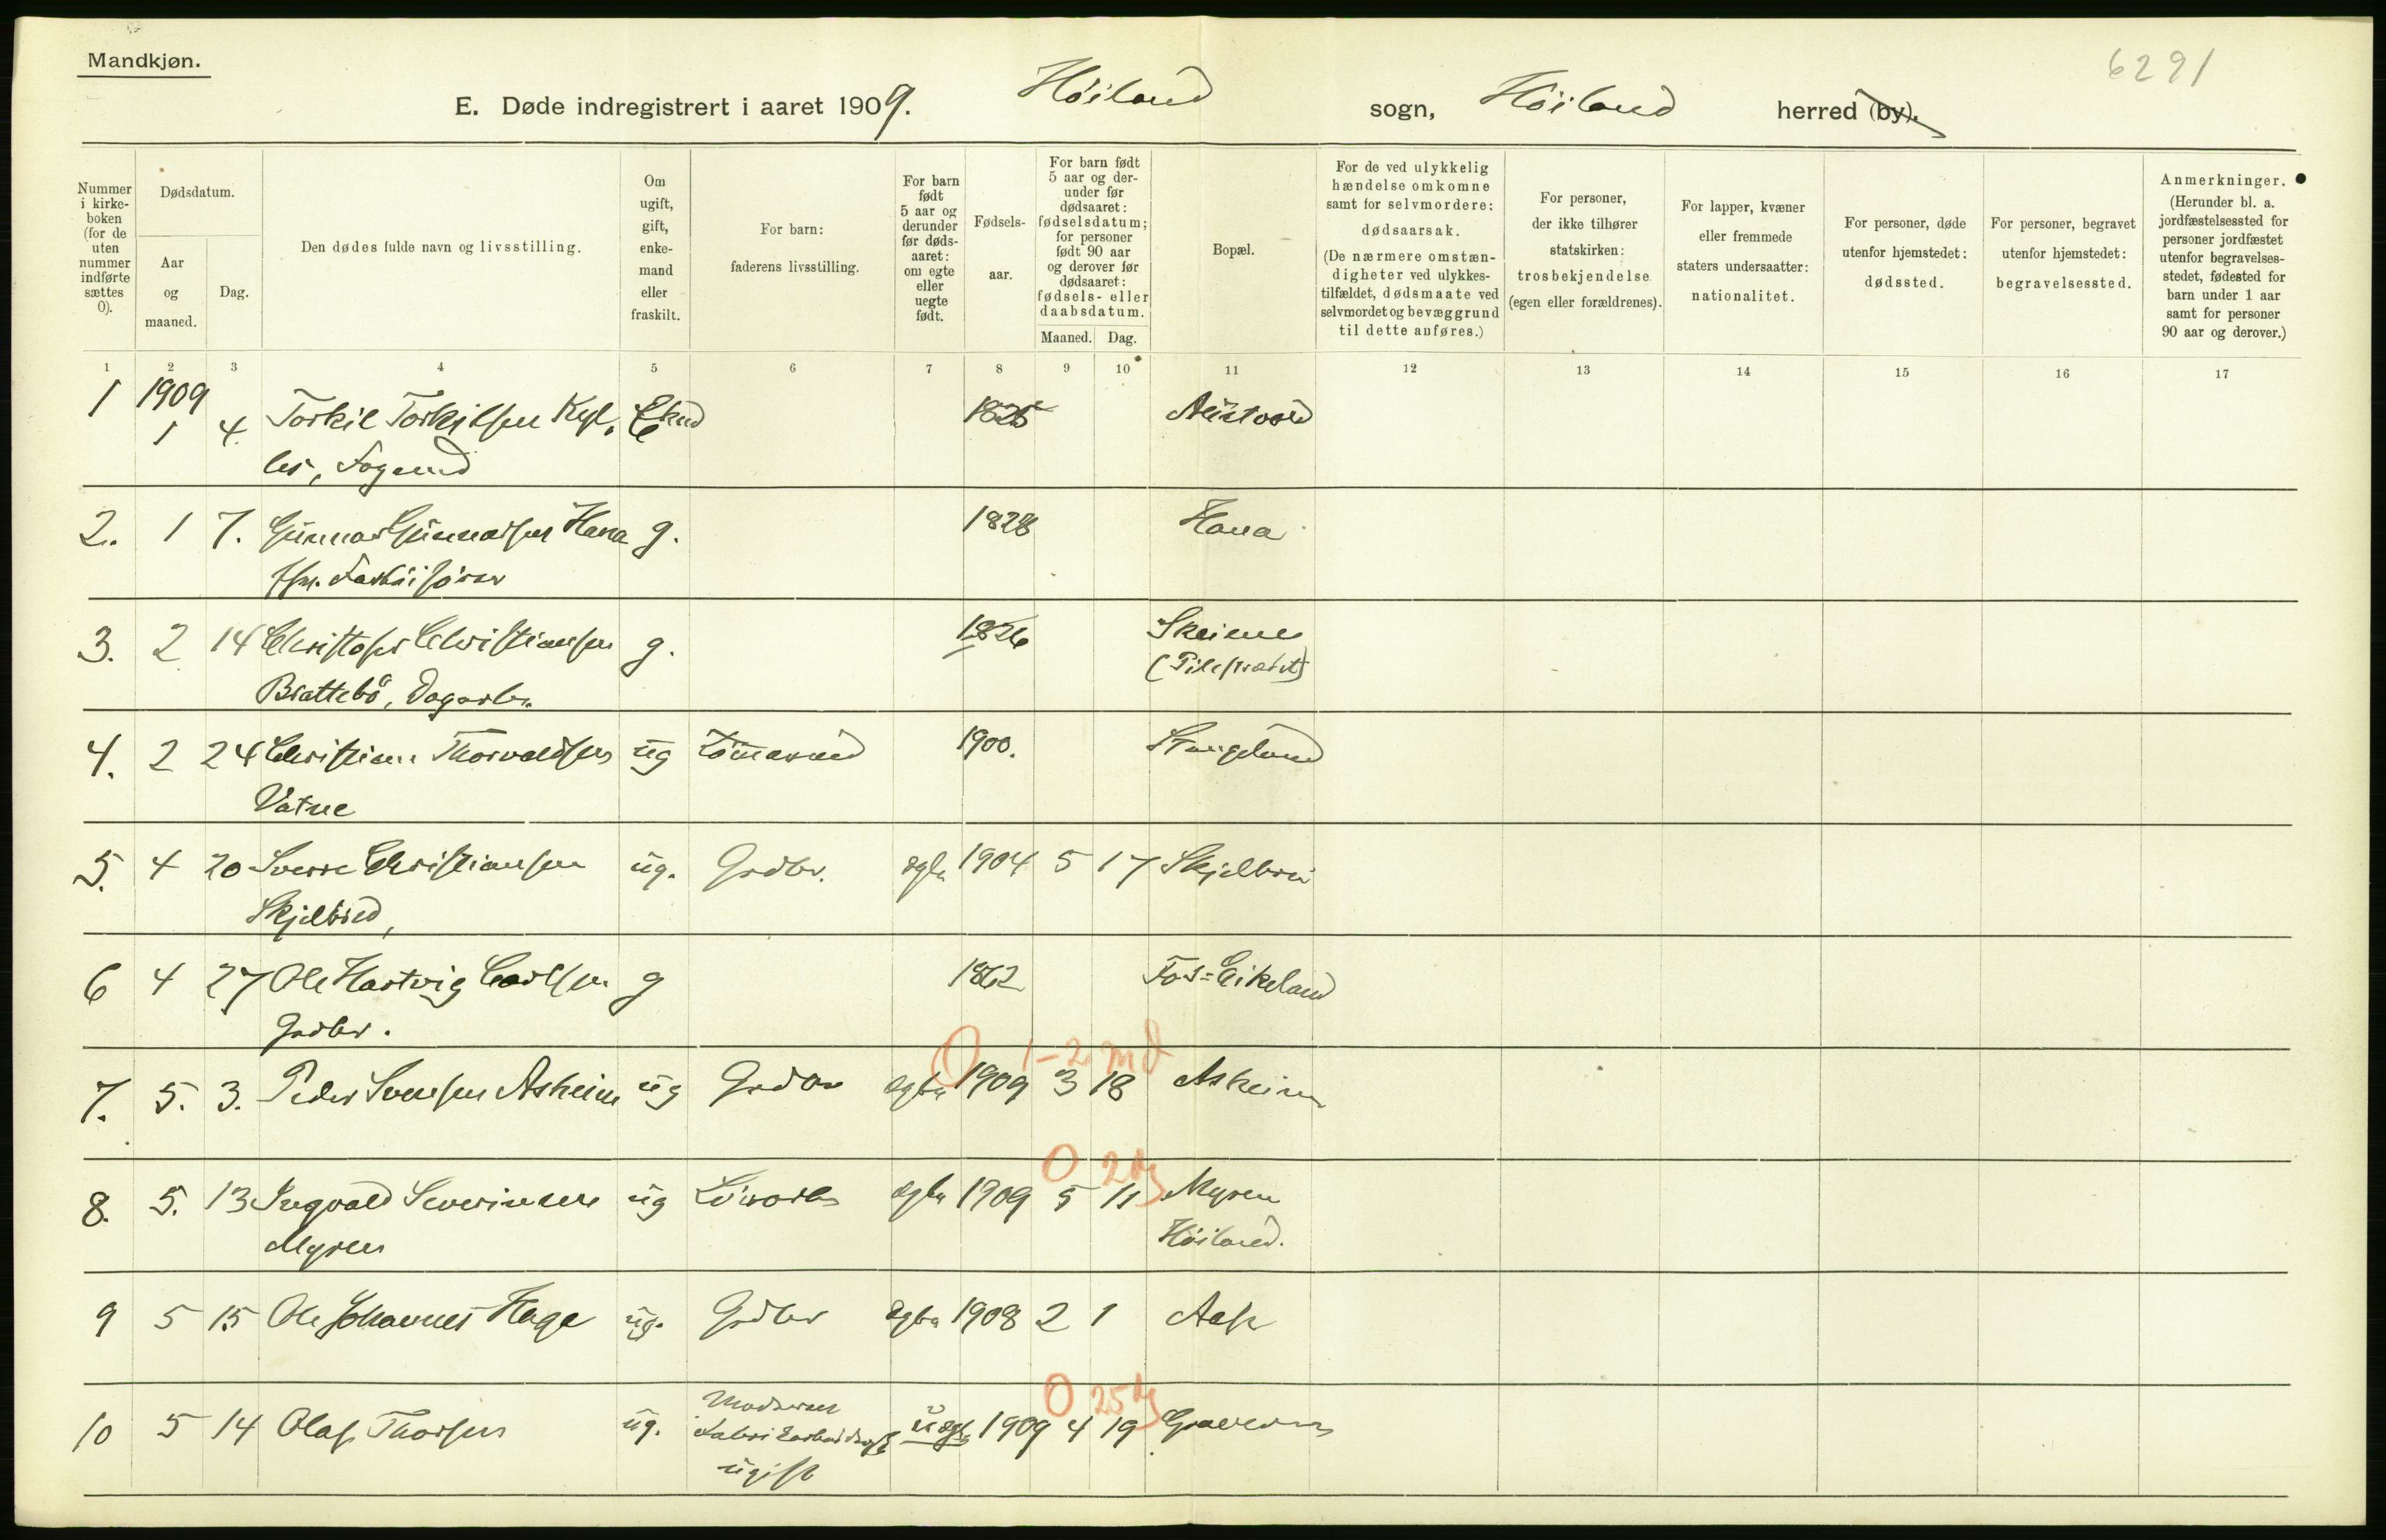 Mandkjøn.
6291
E. Døde indregistrert i aaret 1909. Höiland sogn, Höiland herred (by).
Nummer i kirke-boken (for de uten nummer indførte sættes 0).
Dødsdatum.
Aar og maaned.
Dag.
Den dødes fulde navn og livsstilling.
Om ugift, gift, enke-mand eller fraskilt.
For barn: faderens livsstilling.
For barn født 5 aar og derunder før døds-aaret: om egte eller uegte født.
Fødsels-aar.
For barn født 5 aar og der-under før dødsaaret: fødselsdatum; for personer født 90 aar og derover før dødsaaret: fødsels- eller daabsdatum.
Maaned. Dag.
Bopæl.
For de ved ulykkelig hændelse omkomne samt for selvmordere: dødsaarsak. (De nærmere omstæn-digheter ved ulykkes-tilfældet, dødsmaate ved selvmordet og bevæggrund til dette anføres.)
For personer, der ikke tilhører statskirken: trosbekjendelse (egen eller forældrenes).
For lapper, kvæner eller fremmede staters undersaatter: nationalitet.
For personer, døde utenfor hjemstedet: dødssted.
For personer, begravet utenfor hjemstedet: begravelsessted.
Anmerkninger. (Herunder bl. a. jordfæstelsessted for personer jordfæstet utenfor begravelses-stedet, fødested for barn under 1 aar samt for personer 90 aar og derover.)
1 2 3 4 5 6 7 8 9 10 11 12 13 14 15 16 17
1 1909 1 4 Torkil Torkilsen Kyl. Ekmd 1825
les, Fogemd
2. 1 7. Gunnar Gunnarsen Hana g. 1828 Hana
3. 2 14 Christofer Christiansen g. 1826 Skeiene
Brattebö, Dagarb.
4. 2 24 Christian Thorvaldsen ug Tömmermd 1900. Stangeland
Vatne
5. 4 20 Sverre Christiansen ug. Grdbr. egte 1904 5 17 Skjelbrei
Skjelbred,
6 4 27 Ole Hartvig Carlsen g 1862 Fos=Eikeland
Grdbr.
0 1-2 md
7. 5. 3. Peder Svensen Asheim ug Grdbr egte 1909 3 18 Asheim
0 2 dg
8. 5. 13 Ingvald Severinsen ug Lösarb egte 1909 5 11 Myren
Myren Höiland.
9 5 15 Ole Johannes Hage ug. Grdbr egte 1908 2 1 Aase
0 25 dg
10 5 14 Olaf Thorsen ug. Moderen Fabrikarbeiderske ugift uegte 1909 4 19 Graveren